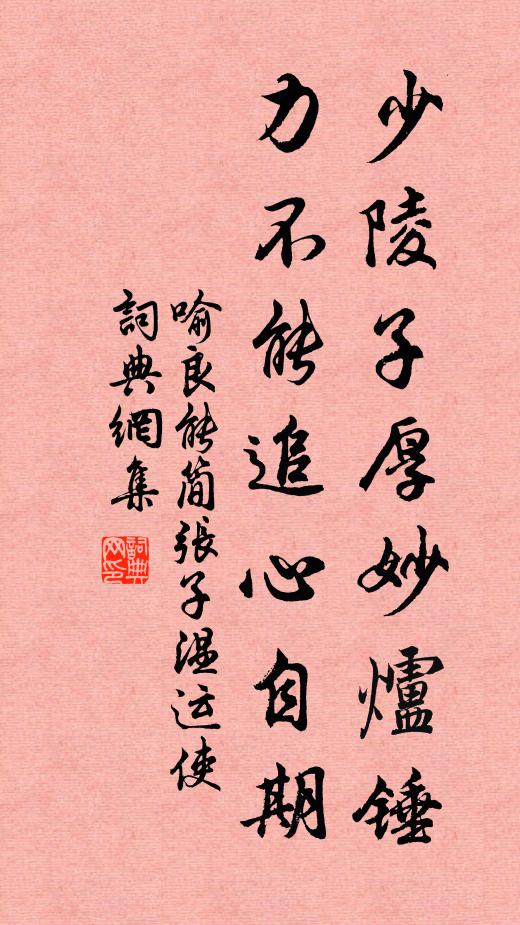 少陵子厚妙爐錘
力不能追心自期
喻良能简張子温运使
詞典網集
詞典
网印